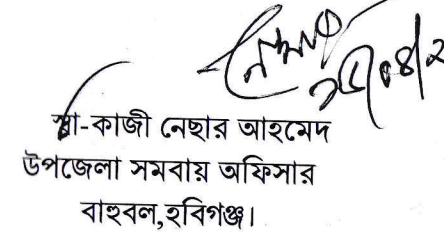 স্বা-কাজী নেছার আহমেদ
উপজেলা সমবায় অফিসার
বাহুবল,হবিগঞ্জ।